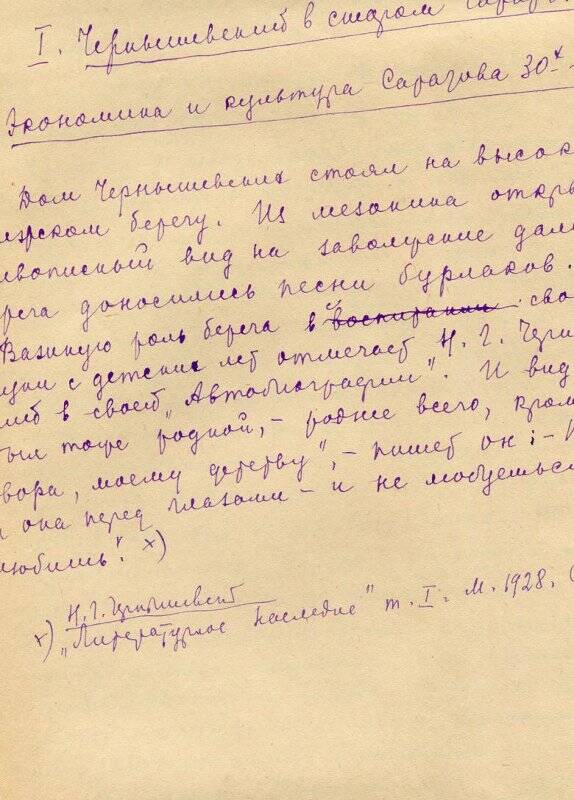 I. Чернышевский в старом Сарато
Экономика и культура Саратова 30х-
Дом Чернышевских стоял на высок
лжском берегу. Из мезонина откры
ивописный вид на заволжские дали
рега доносились песни бурлаков.
Важную роль берега в воспитании сво
с детских лет отмечает Н. Г. Черны
в своей „Автобиографии". И вид
был тоже родной, – роднее всего, кром
вора, моему детству", – пишет он: – И
и она перед глазами – и не любуешься
любишь". х)
Н. Г. Чернышевский
х) „Литературное наследие" т. I. М. 1928. (